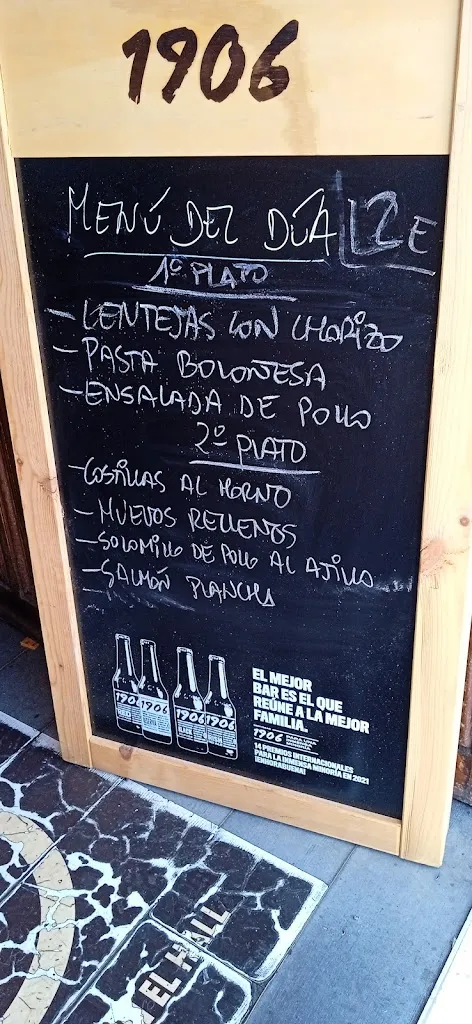 1906
MENÚ DEL DÍA 12E
1º PLATO
- LENTEJAS CON CHORIZO
- PASTA BOLOÑESA
- ENSALADA DE POLLO
2º PLATO
- COSTILLAS AL HORNO
- HUEVOS RELLENOS
- SOLOMILLO DE POLLO AL AJILLO
- SALMÓN PLANCHA
1906 1906 1906 1906
EL MEJOR
BAR ES EL QUE
REÚNE A LA MEJOR
FAMILIA.
1906
14 PREMIOS INTERNACIONALES
PARA LA INMENSA MINORÍA EN 2021
¡ENHORABUENA!
EL HALL